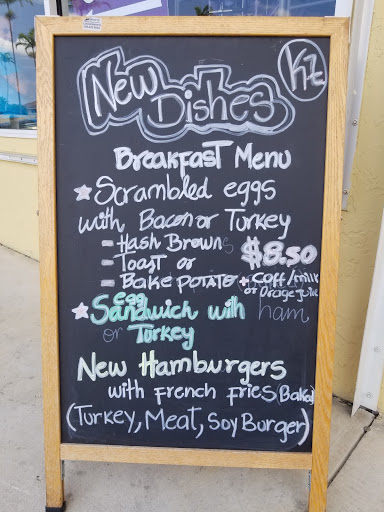 New Dishes
Kz
Breakfast Menu
Scrambled eggs
with Bacon or Turkey
- Hash Browns
- Toast or
$8.50
- Bake Potato + Coff/milk
or Orage juice
egg
Sandwich with ham
or Turkey
New Hamburgers
with French Fries (Baka)
(Turkey, Meat, Soy Burger)